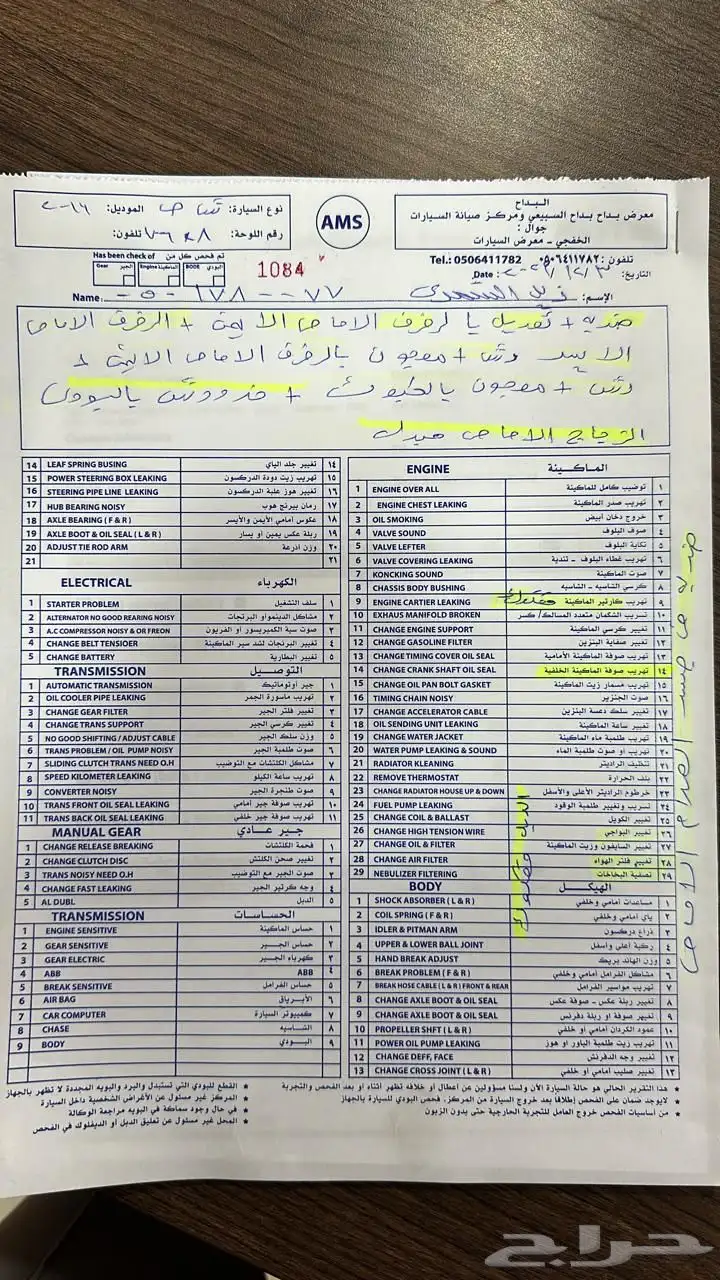 البداح
معرض بداح بداح السبيعي ومركز صيانة السيارات
جوال :
الخفجي - معرض السيارات
AMS
نوع السيارة: الموديل: ٢٠١٦
رقم اللوحة: تلفون:
تم فحص كل من Has been check of
البودي BODE الماكينة Engine الجير Gear
1084
Tel.: 0506411782 تلفون: ٠٥٠٦٤١١٧٨٢
التاريخ: Date:
الإسم: Name:
+ تعديل بالرفرف الامامي الايمن + الرفرف الامامي
الايسر رش + معجون بالرفرف الامامي الايمن +
رش + معجون بالكبوت + رش بالبودي
الزجاج الامامي مبدل
ENGINE الماكينة
1 ENGINE OVER ALL توضيب كامل للماكينة ١
2 ENGINE CHEST LEAKING تهريب صدر الماكينة ٢
3 OIL SMOKING خروج دخان أبيض ٣
4 VALVE SOUND صوف البلوف ٤
5 VALVE LEFTER تكاية البلوف ٥
6 VALVE COVERING LEAKING تهريب غطاء البلوف - تندية ٦
7 KONCKING SOUND صوت الماكينة ٧
8 CHASSIS BODY BUSHING كرسي الشاسيه - الشاسيه ٨
9 ENGINE CARTIER LEAKING مفكوك تهريب كارتير الماكينة ٩
10 EXHAUS MANIFOLD BROKEN تسريب الشكمان متعدد المسالك/ كسر ١٠
11 CHANGE ENGINE SUPPORT تغيير كرسي الماكينة ١١
12 CHANGE GASOLINE FILTER تغيير صفاية البنزين ١٢
13 CHANGE TIMING COVER OIL SEAL تهريب صوفة الماكينة الأمامية ١٣
14 CHANGE CRANK SHAFT OIL SEAL تهريب صوفة الماكينة الخلفية ١٤
15 CHANGE OIL PAN BOLT GASKET تهريب مسمار زيت الماكينة ١٥
16 TIMING CHAIN NOISY صوت الجنزير ١٦
17 CHANGE ACCELERATOR CABLE تغيير سلك دعسة البنزين ١٧
18 OIL SENDING UNIT LEAKING تغيير ساعة الماكينة ١٨
19 CHANGE WATER JACKET تهريب طلمبة ماء الماكينة ١٩
20 WATER PUMP LEAKING & SOUND تهريب او صوت طلمبة الماء ٢٠
21 RADIATOR KLEANING تنظيف الراديتر ٢١
22 REMOVE THERMOSTAT بلف الحرارة ٢٢
23 CHANGE RADIATOR HOUSE UP & DOWN خرطوم الراديتر الأعلى والأسفل ٢٣
24 FUEL PUMP LEAKING تسريب وتغيير طلمبة الوقود ٢٤
25 CHANGE COIL & BALLAST تغيير الكويل ٢٥
26 CHANGE HIGH TENSION WIRE تغيير البواجي ٢٦
27 CHANGE OIL & FILTER تغيير السايفون وزيت الماكينة ٢٧
28 CHANGE AIR FILTER تغيير فلتر الهواء ٢٨
29 NEBULIZER FILTERING تصفية البخاخات ٢٩
الدبل مفكوك
الصدام الامامي
BODY الهيكل
1 SHOCK ABSORBER ( L & R ) مساعدات أمامي وخلفي ١
2 COIL SPRING ( F & R ) ياي أمامي وخلفي ٢
3 IDLER & PITMAN ARM ذراع دركسون ٣
4 UPPER & LOWER BALL JOINT ركبة أعلى وأسفل ٤
5 HAND BREAK ADJUST وزن الهاند بريك ٥
6 BREAK PROBLEM ( F & R ) مشاكل الفرامل أمامي وخلفي ٦
7 BREAK HOSE CABLE ( L & R ) FRONT & REAR تهريب مواسير الفرامل ٧
8 CHANGE AXLE BOOT & OIL SEAL تغيير ربلة عكس - صوفة عكس ٨
9 CHANGE AXLE BOOT & OIL SEAL تغيير صوفة او ربلة دفرنس ٩
10 PROPELLER SHFT ( L & R ) عمود الكردان أمامي او خلفي ١٠
11 POWER OIL PUMP LEAKING تهريب زيت طلمبة الباور او هوز ١١
12 CHANGE DEFF, FACE تغيير وجه الدفرنش ١٢
13 CHANGE CROSS JOINT ( L & R ) تغيير صليب أمامي او خلفي ١٣
14 LEAF SPRING BUSING تغيير جلد الياي ١٤
15 POWER STEERING BOX LEAKING تهريب زيت دودة الدركسون ١٥
16 STEERING PIPE LINE LEAKING تغيير هوز علبة الدركسون ١٦
17 HUB BEARING NOISY رمان بيرنج هوب ١٧
18 AXLE BEARING ( F & R ) عكوس أمامي الأيمن والأيسر ١٨
19 AXLE BOOT & OIL SEAL ( L & R ) ربلة عكس يمين أو يسار ١٩
20 ADJUST TIE ROD ARM وزن أذرعة ٢٠
21 ٢١
ELECTRICAL الكهرباء
1 STARTER PROBLEM سلف التشغيل ١
2 ALTERNATOR NO GOOD REARING NOISY مشاكل الدينمو أو البرنجات ٢
3 A.C COMPRESSOR NOISY & OR FREON صوت سية الكمبريسور أو الفريون ٣
4 CHANGE BELT TENSIOER تغيير البرنجات لشد سير الماكينة ٤
5 CHANGE BATTERY تغيير البطارية ٥
TRANSMISSION التوصيل
1 AUTOMATIC TRANSMISSION جير أوتوماتيك ١
2 OIL COOLER PIPE LEAKING تهريب ماسورة الجمر ٢
3 CHANGE GEAR FILTER تغيير فلتر الجير ٣
4 CHANGE TRANS SUPPORT تغيير كرسي الجير ٤
5 NO GOOD SHIFTING / ADJUST CABLE وزن سلك الجير ٥
6 TRANS PROBLEM / OIL PUMP NOISY صوت طلمبة الجير ٦
7 SLIDING CLUTCH TRANS NEED O.H مشاكل الكلتشات مع التوضيب ٧
8 SPEED KILOMETER LEAKING تهريب ساعة الكيلو ٨
9 CONVERTER NOISY صوت طنجرة الجير ٩
10 TRANS FRONT OIL SEAL LEAKING تهريب صوفة جير أمامي ١٠
11 TRANS BACK OIL SEAL LEAKING تهريب صوفة جير خلفي ١١
MANUAL GEAR جير عادي
1 CHANGE RELEASE BREAKING فحمة الكلتشات ١
2 CHANGE CLUTCH DISC تغيير صحن الكلتش ٢
3 TRANS NOISY NEED O.H صوت الجير مع التوضيب ٣
4 CHANGE FAST LEAKING وجه كرتير الجير ٤
5 AL DUBL الدبل ٥
TRANSMISSION الحساسات
1 ENGINE SENSITIVE حساس الماكينة ١
2 GEAR SENSITIVE حساس الجير ٢
3 GEAR ELECTRIC كهرباء الجير ٣
4 ABB ABB ٤
5 BREAK SENSITIVE حساس الفرامل ٥
6 AIR BAG الأيرباق ٦
7 CAR COMPUTER كمبيوتر السيارة ٧
8 CHASE الشاسيه ٨
9 BODY البودي ٩
★ هذا التقرير الحالي هو حالة السيارة الآن ولسنا مسؤولين عن أعطال أو خلافه تظهر أثناء أو بعد الفحص والتجربة
★ لايوجد ضمان على الفحص إطلاقاً بعد خروج السيارة من المركز، فحص البودي للسيارة بالجهاز
★ من أساسيات الفحص خروج العامل للتجربة الخارجية حتى بدون الزبون
★ القطع للبودي التي تستبدل والبرد والبويه المجددة لا تظهر بالجهاز
★ المركز غير مسئول عن الأغراض الشخصية داخل السيارة
★ في حال وجود سماكة في البويه مراجعة الوكالة
★ المحل غير مسئول عن تعليق الدبل أو الديفلوك في الفحص
حراج